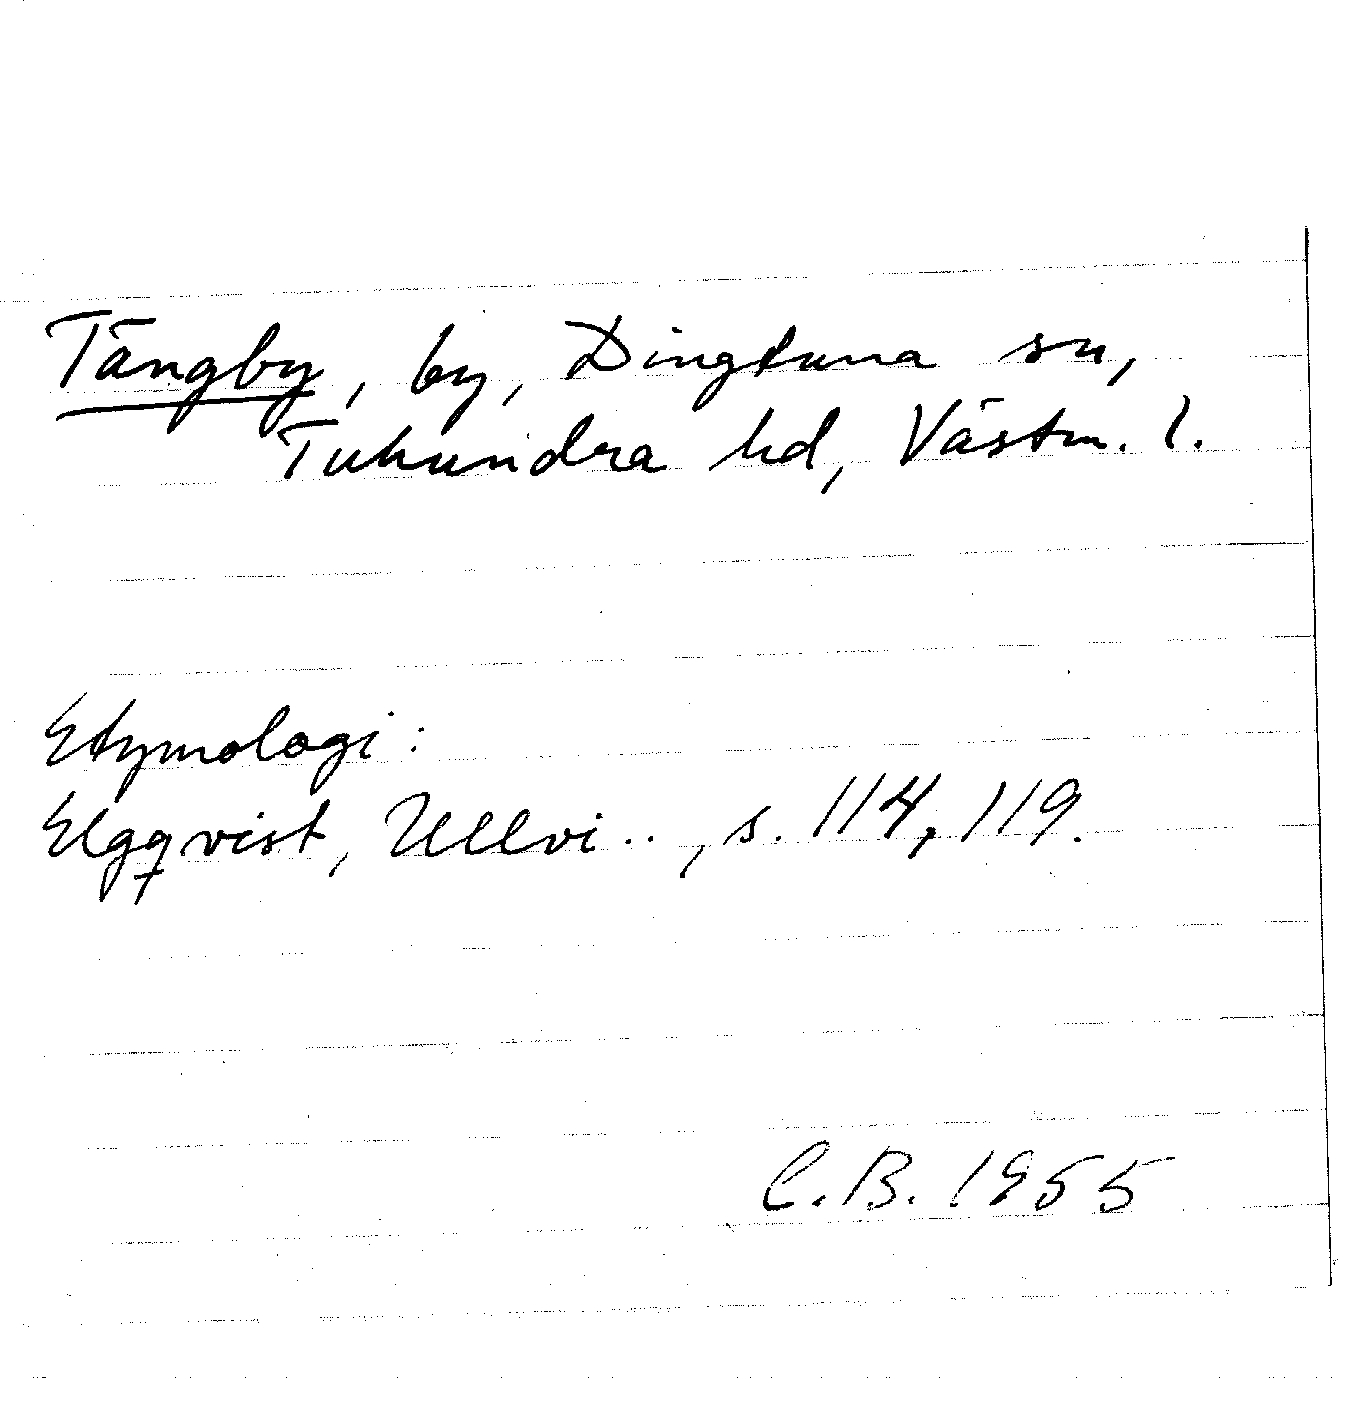 Tängby, by, Dingtuna sn,
Tuhundra hd, Västm. l.
Etymologi:
Elgqvist, Ullvi.., s. 114, 119.
C.B. 1955